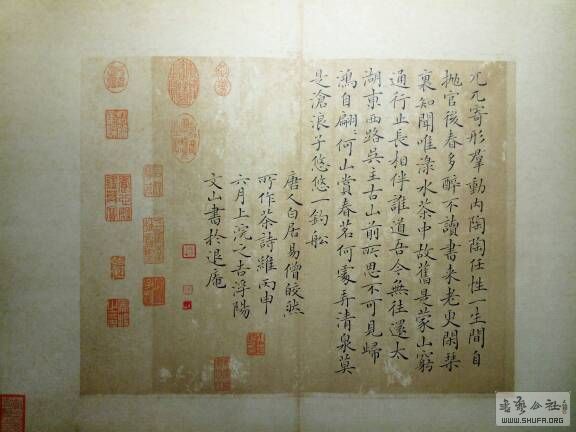 兀兀寄形羣動內陶陶任性一生間自
拋官後春多醉不讀書来老更閑琹
裏知聞唯淥水茶中故舊是蒙山窮
通行止長相伴誰道吾今無往還太
湖東西路吳主古山前所思不可見歸
鴻自翩〻何山賞春茗何處弄清泉莫
是滄浪子悠悠一釣舩
唐人白居易僧皎然
所作茶詩維丙申
六月上浣之吉潯陽
文山書於退庵
WWW.SHUFA.ORG